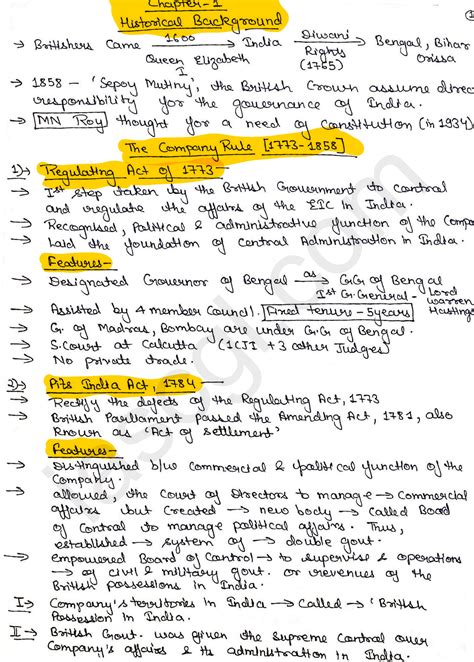 Chapter-1
Historical Background
→ Britishers Came 1600 → India Diwani → Bengal, Bihar
Queen Elizabeth I Rights (1765) Orissa
→ 1858 - 'Sepoy Mutiny', the British Crown assume direc
responsibility for the governance of India.
→ MN Roy thought for a need of Constitution (in 1934)
The Company Rule [1773-1858]
1)→ Regulating Act of 1773 —
→ Ist step taken by the British Government to control
and regulate the affairs of the EIC in India.
→ Recognised, Political & administrative function of the Compa
→ Laid the foundation of Central Administration in India.
Features-
→ Designated Governor of Bengal as → G.G of Bengal
Ist G.General - Lord Warren Hastings
→ Assisted by 4 member Council. Fixed tenure - 5years
→ G. of Madras, Bombay are under G.G of Bengal.
→ S.Court at Calcutta (1CJI + 3 other Judges)
→ No private trade.
2)→ Pits India Act, 1784 —
→ Rectify the defects of the Regulating Act, 1773
→ British Parliament passed the Amending Act, 1781, also
known as 'Act of settlement'
Features-
→ Distinguished b/w Commercial & political function of the
Company.
→ allowed, the Court of Directors to manage → Commercial
affairs but created → new body → Called Board
of Control to manage political affairs. Thus,
established → system of → double govt.
→ empowered Board of Control → to supervise & operations
→ of civil & military govt. or revenues of the
British possessions in India.
I→ Company's territories in India → Called → 'British
Possession in India.
II→ British Govt. was given the Supreme Control over
Company's affairs & its administration in India.